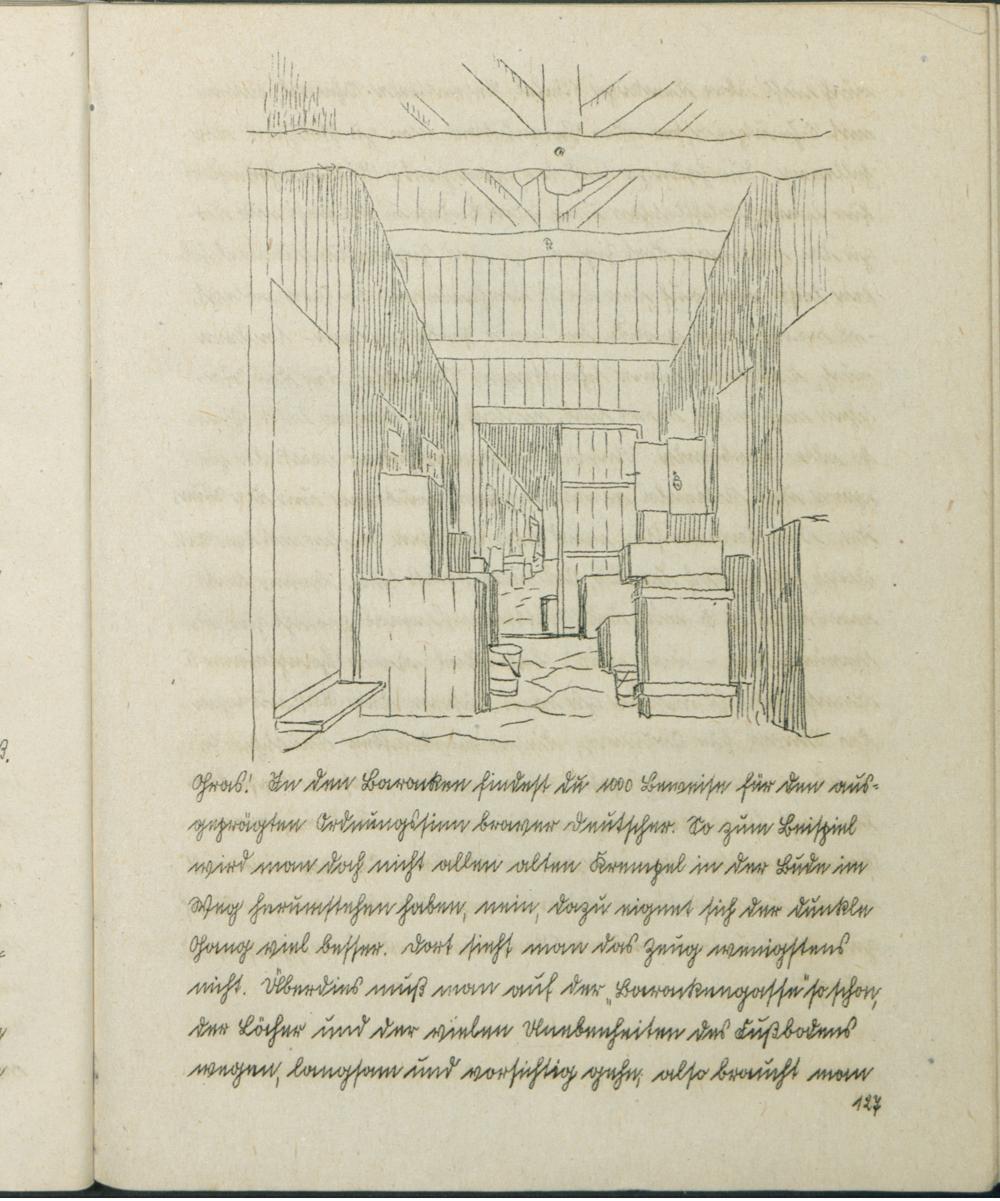 Gras! In den Baracken findest du 1000 Beweise für den aus-
geprägten Ordnungssinn braver Deutscher. So zum Beispiel
wird man doch nicht allen alten Krempel in der Bude im
Weg herumstehen haben, nein, dazu eignet sich der dunkle
Gang viel besser. Dort sieht man das Zeug wenigstens
nicht. Überdies muß man auf der „Barackengasse" so schon,
der Löcher und der vielen Unebenheiten des Fußbodens
wegen, langsam und vorsichtig gehn; also braucht man
127